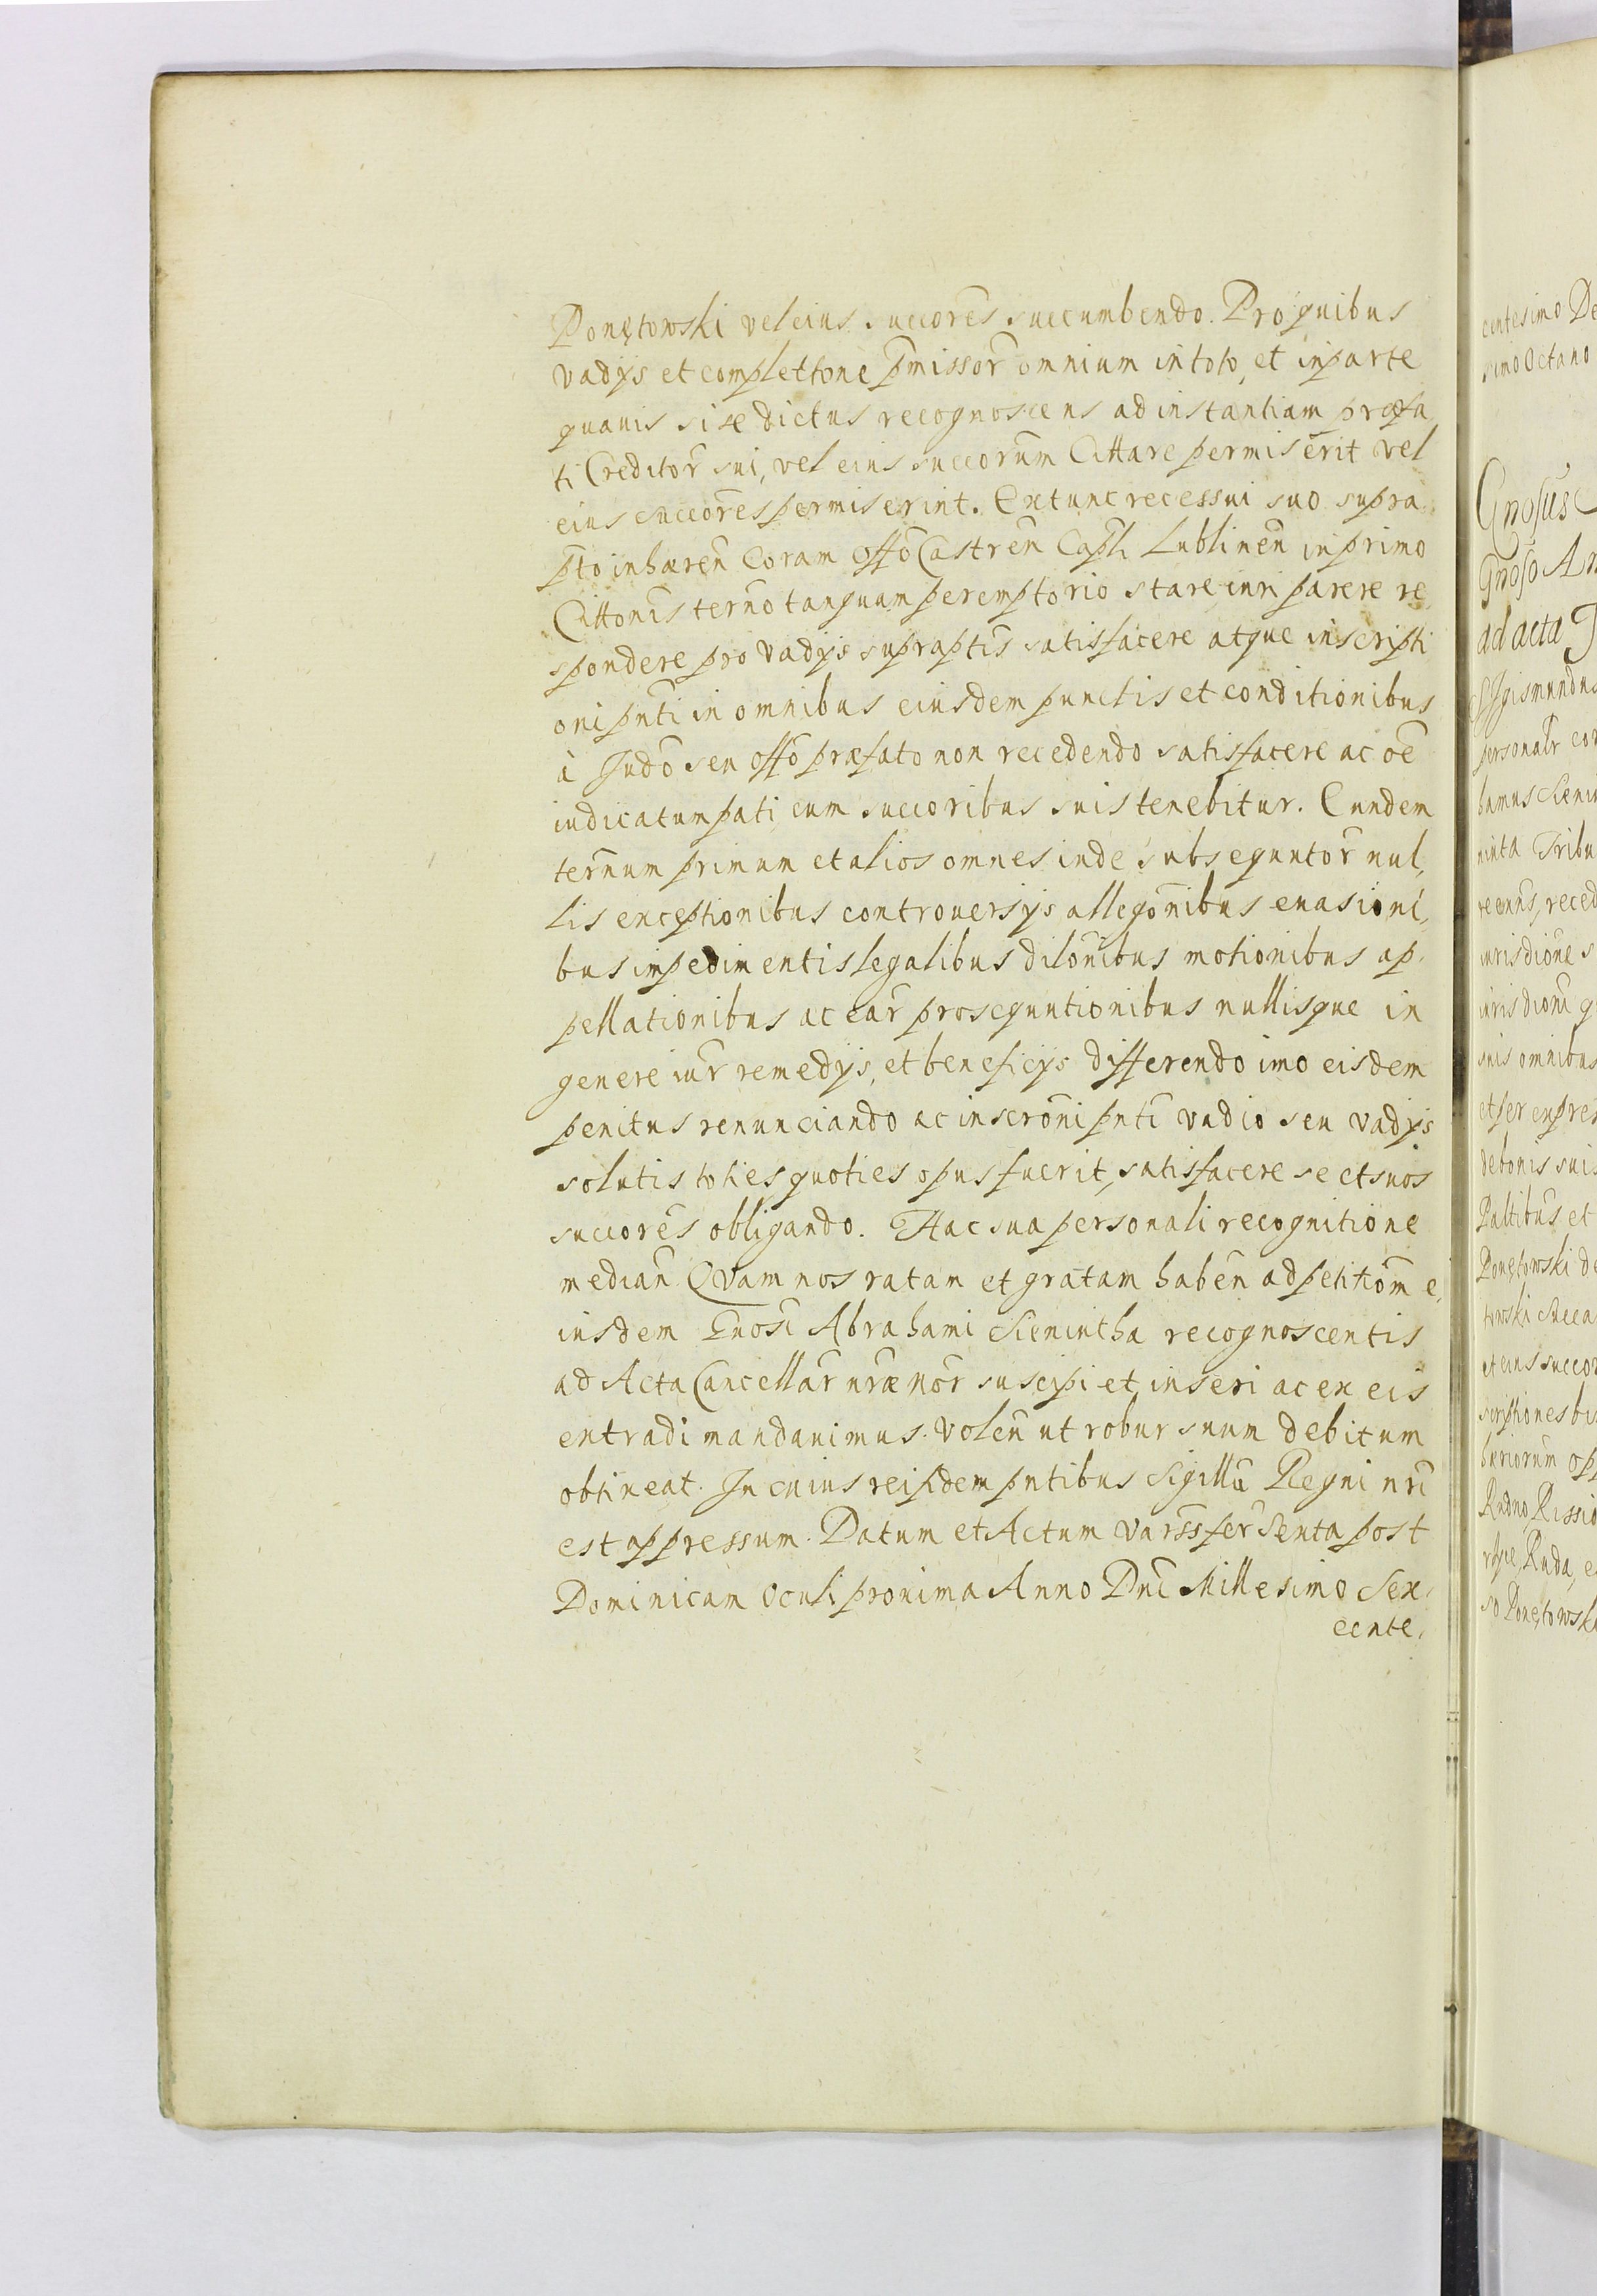 Ponętowski vel eius succores succumbendo. Pro quibus
vadÿs et complettone pmissor omnium in toto, et in parte
quauis si se dictus recognoscens ad instantiam præfa
ti Creditor sui, vel eius succorum Cittare permiserit vel
eius succores permiserint. Extunc recessui suo supra
pto inhæren Coram offo Castren Capli Lublinen in primo
Cittonis terno tanquam peremptorio stare iuri parere re
spondere pro vadÿs supraptis satisfacere atque inscripti
oni pnti in omnibus eiusdem punctis et conditionibus
à Judo seu offo præfato non recedendo satisfacere ac oe
iudicatum pati cum succoribus suis tenebitur. Eundem
ternum primum et alios omnes inde subsequutor nul,
lis exceptionibus controuersÿs allegonibus euasioni,
bus impedimentis legalibus dilonibus motionibus ap,
pellationibus ac ear prosequutionibus nullisque in
genere iur remedÿs, et beneficÿs differendo imo eisdem
penitus renunciando ac inscroni pnti vadio seu vadÿs
solutis toties quoties opus fuerit, satisfacere se et suos
succores obligando. Hac sua personali recognitione
median Quam nos ratam et gratam haben ad petitiom e,
iusdem Gnosi Abrahami Sienintha recognoscentis
ad Acta Cancellar nræ Mor suscipi et inseri ac ex eis
extradi mandauimus. Volen ut robur suum debitum
obtineat. In cuius rei fidem pntibus Sigillu Regni nri
est appressum. Datum et Actum Varss fer Sexta post
Dominicam Oculi proxima Anno Dni Millesimo Sex,
cente,
centesimo De
simo Octauo
Gnosus
Gnoso An
ad acta
Sigismundus
personalr cor
bamus Sienin
Tribu
recens, reced
iurisdione s
iurisdioni q
suis omnibus
et per expres
de bonis suis
Paltibus et
Ponętowski de
towski Succo
et eius succor
scriptiones bi
buriorum op
Rudno, Rissio
Ruda, e
so Ponętowski